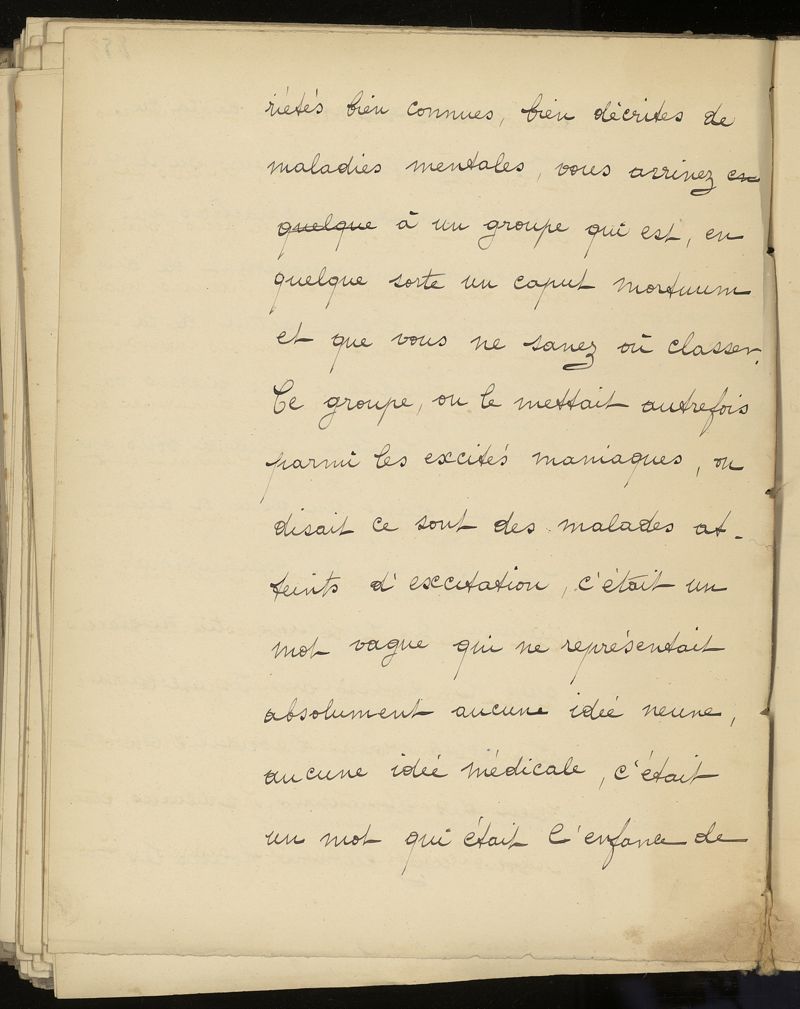 riétés bien connues, bien décrites de
maladies mentales, vous arrivez en
quelque à un groupe qui est, en
quelque sorte un caput mortuum
et que vous ne savez où classer.
Ce groupe, on le mettait autrefois
parmi les excités maniaques, on
disait ce sont des malades at-
teints d'excitation, c'était un
mot vague qui ne représentait
absolument aucune idée neuve,
aucune idée médicale, c'était
un mot qui était l'enfance de